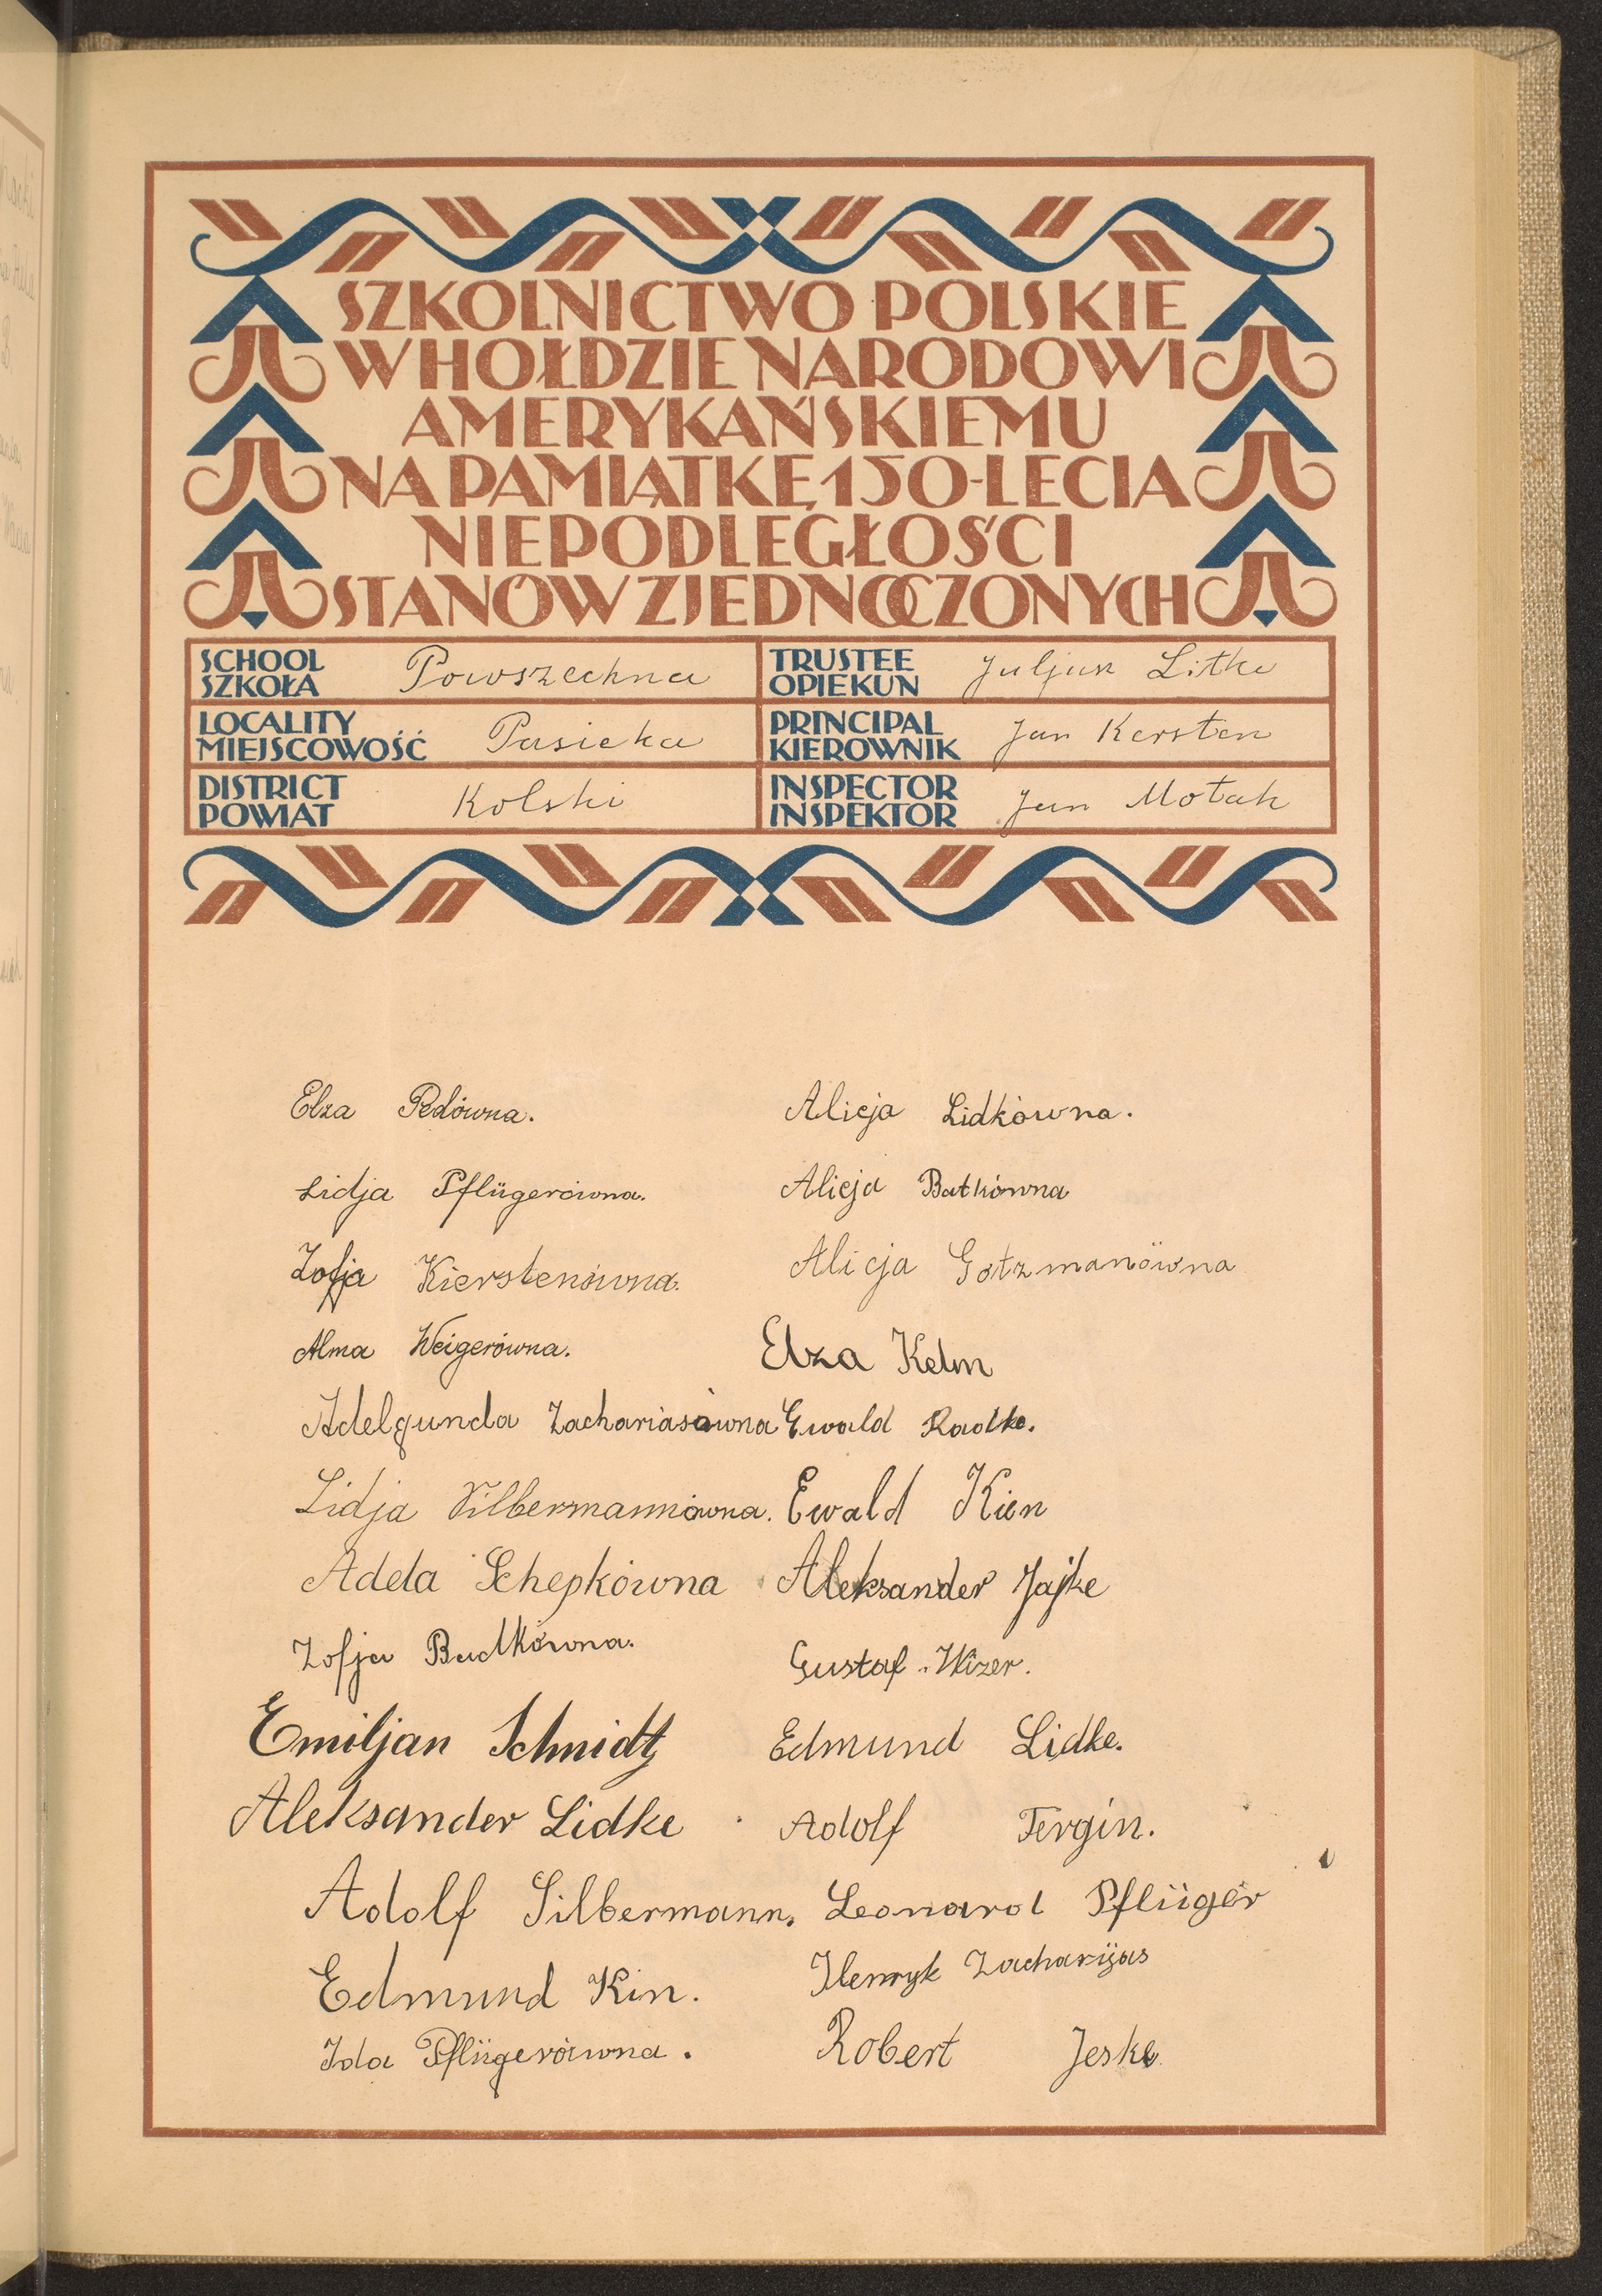 SZKOLNICTWO POLSKIE
W HOŁDZIE NARODOWI
AMERYKAŃSKIEMU
NA PAMIĄTKĘ 150-LECIA
NIEPODLEGŁOŚCI
STANÓW ZJEDNOCZONYCH
SCHOOL
SZKOŁA Powszechna
TRUSTEE
OPIEKUN Juljan Litke
LOCALITY
MIEJSCOWOŚĆ Pasieka
PRINCIPAL
KIEROWNIK Jan Kersten
DISTRICT
POWIAT Kolski
INSPECTOR
INSPEKTOR Jan Motak
Elza Pedówna.
Lidja Pflügerówna.
Zofja Kierstenówna.
Alma Weigerówna.
Adelgunda Zachariasówna
Lidja Silbermannówna.
Adela Schepkówna
Zofja Budkówna.
Emiljan Schmidt
Aleksander Lidke
Adolf Silbermann.
Edmund Kin.
Ida Pflügerówna.
Alicja Lidkówna.
Alicja Batkówna
Alicja Gotzmanówna
Elza Kelm
Ewald Radke.
Ewald Kien
Aleksander Jajke
Gustaf Wizer.
Edmund Lidke.
Adolf Fergin.
Leonard Pflüger
Henryk Zacharijas
Robert Jeske